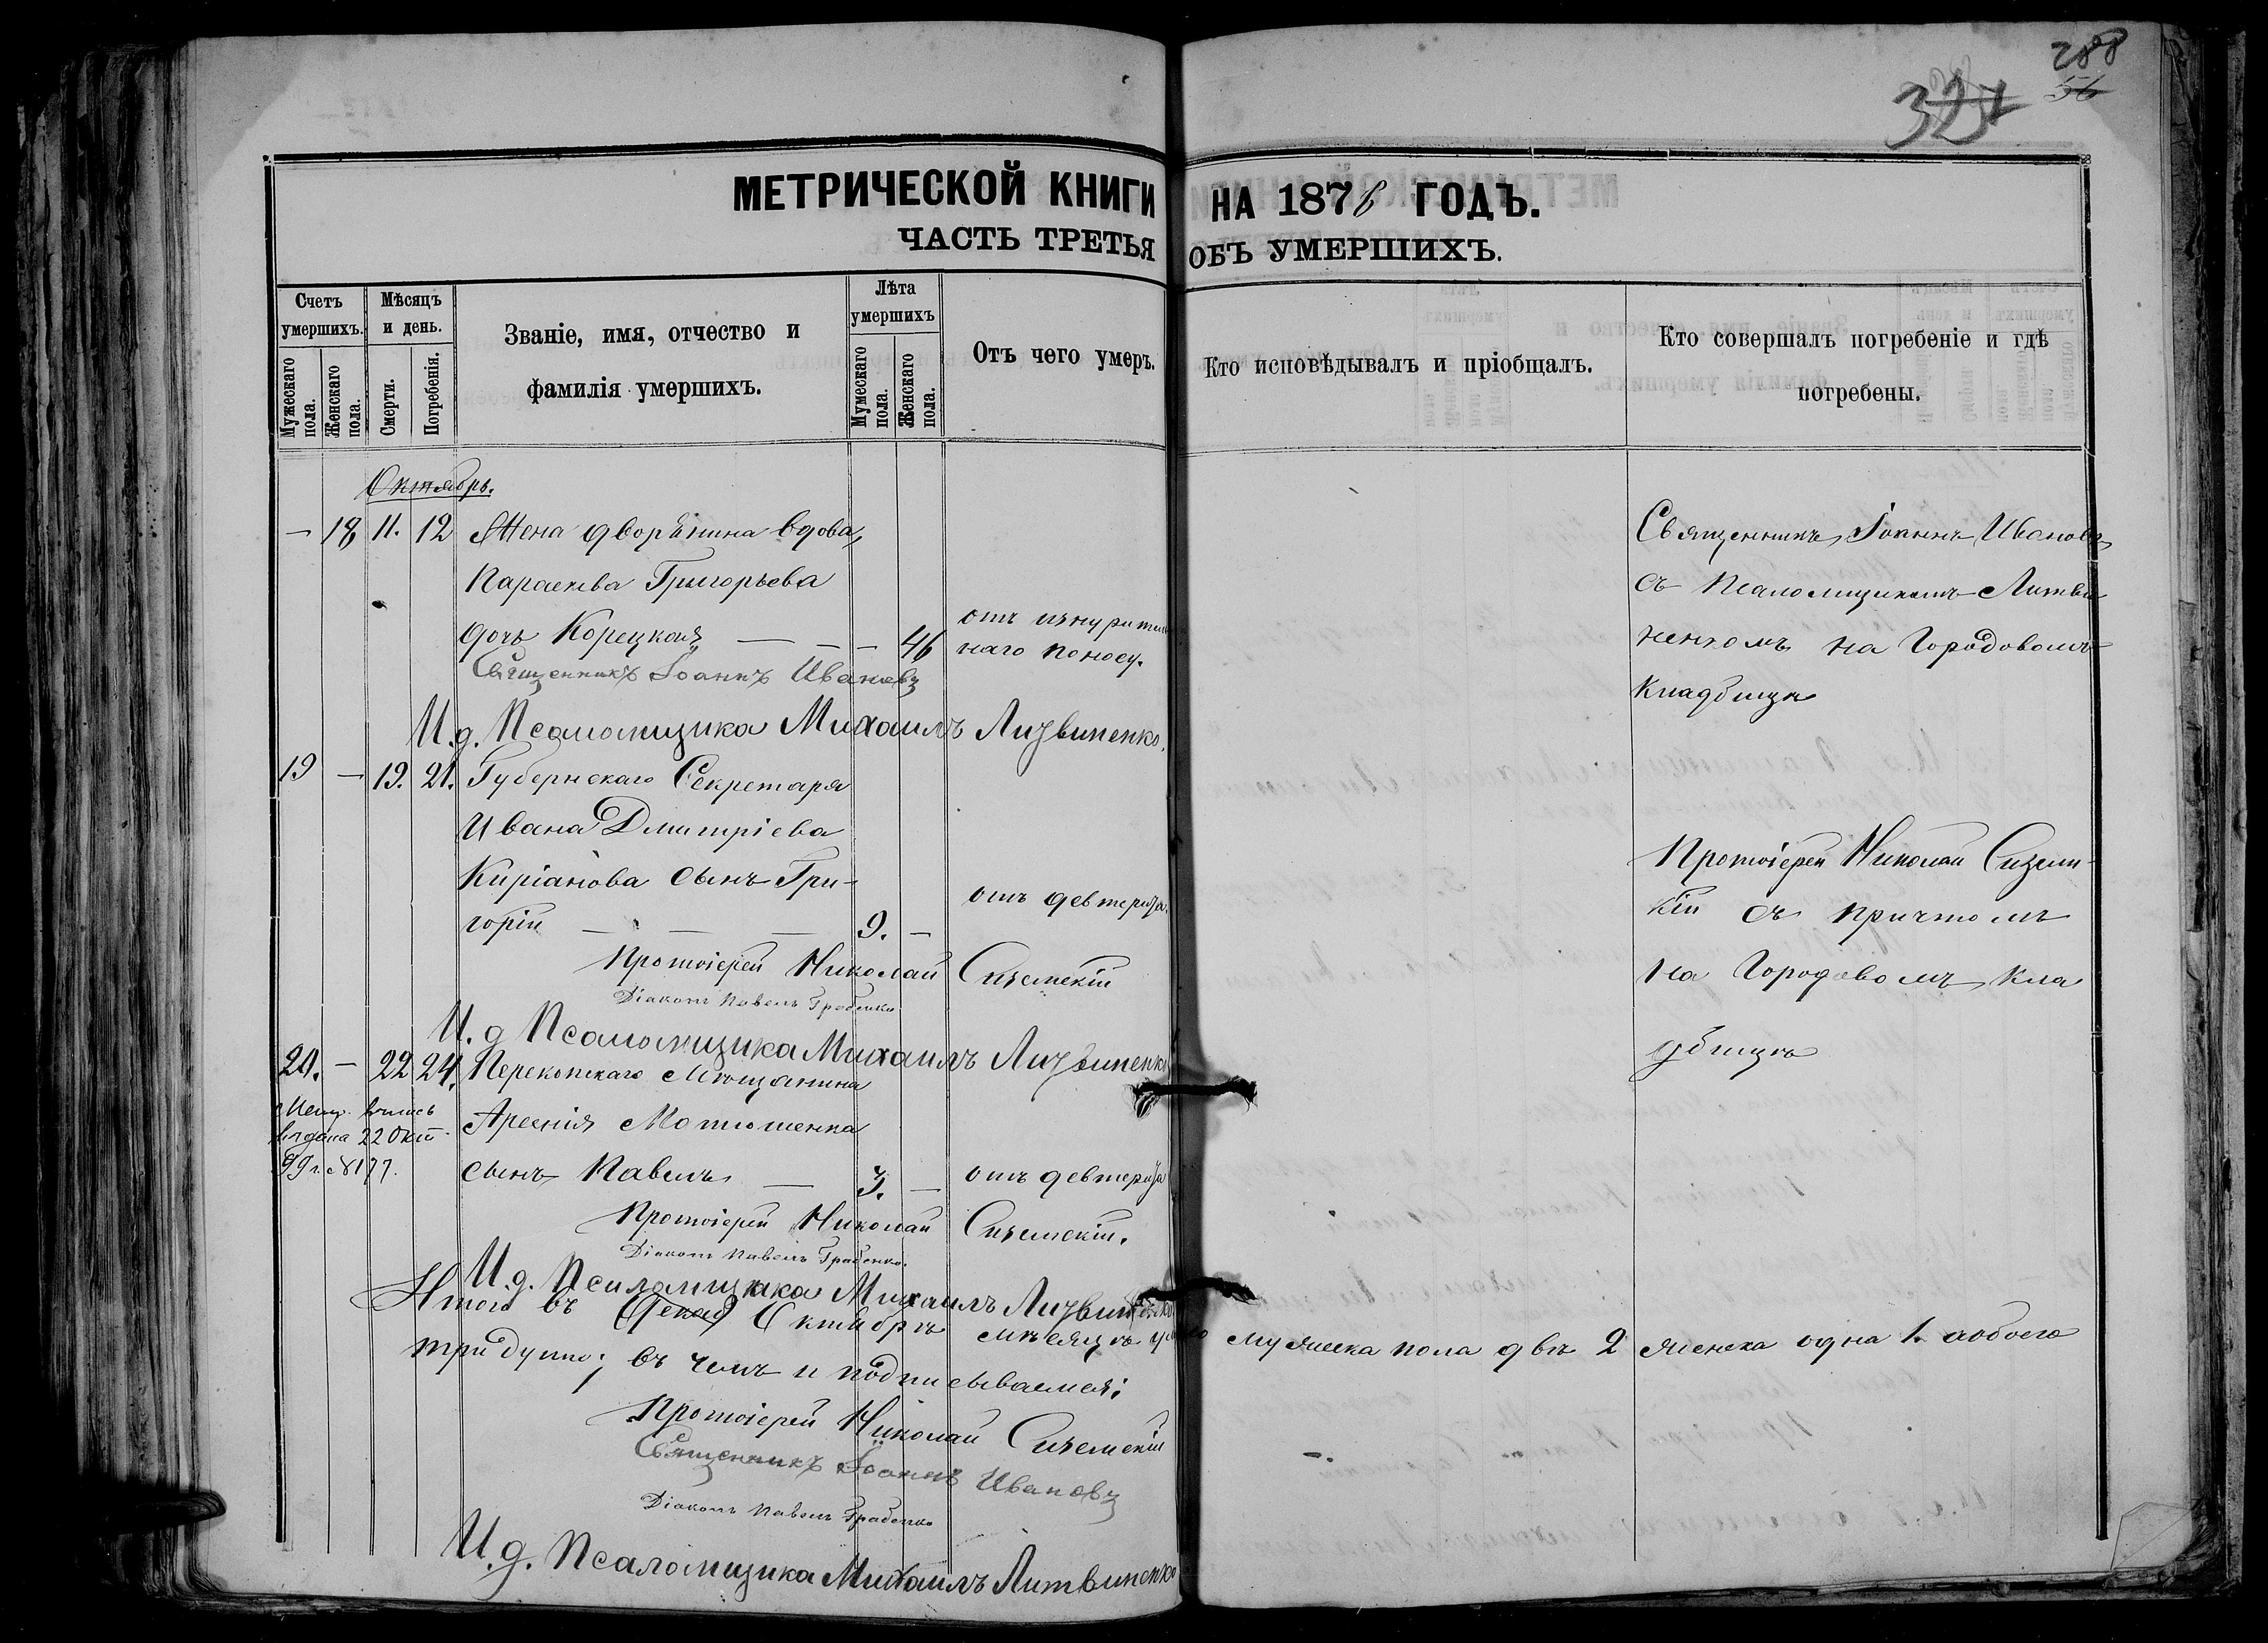 288
56
321
МЕТРИЧЕСКОЙ КНИГИ НА 1876 ГОДЪ.
ЧАСТЬ ТРЕТЬЯ ОБЪ УМЕРШИХЪ.
Счетъ умершихъ.
Мужескаго пола.
Женскаго пола.
Мѣсяцъ и день.
Смерти.
Погребенія.
Званіе, имя, отчество и
фамилія умершихъ.
Лѣта умершихъ
Мумескаго пола.
Женскаго пола.
Отъ чего умеръ.
Кто исповѣдывалъ и пріобщалъ.
Кто совершалъ погребеніе и гдѣ
погребены.
Октябрь.
— 18 11. 12 Жена дворянина вдова,
Параскева Григорьева
дочь Корецкая — — — 46
отъ изнурител
наго поносу.
Священникъ Іоаннъ Ивановъ
съ Псаломщикомъ Литви
ненкомъ на Городовомъ
кладбищѣ
Священникъ Іоаннъ Ивановъ
И.д. Псаломщика Михаилъ Литвиненко.
19 — 19. 21. Губернскаго Секретаря
Ивана Дмитріева
Киріанова сынъ Гри-
горій — — — 9. —
отъ девтерита.
Протоіерей Николай Сизем-
кій съ причтомъ
на Городовомъ кла
дбищѣ
Протоіерей Николай Сиземскій
Діаконъ Павелъ Грабенко
И.д Псаломщика Михаилъ Литвиненко
20. — 22 24. Перекопскаго Мѣщанина
Арсенія Матюшенка
сынъ Павелъ — 3. —
отъ девтерита
Метр. выпись
выдана 22 Окт.
99 г. №177.
Протоіерей Николай Сиземскій.
Діаконъ Павелъ Грабенко.
И.д. Псаломщика Михаилъ Литвиненко
Итого въ Октябрѣ мѣсяцѣ мужеска пола двѣ 2 женска одна 1. а обоего
три души; въ чемъ и подписываемся:
Протоіерей Николай Сиземскій
Священникъ Іоаннъ Ивановъ
Діаконъ Павелъ Грабенко
И.д. Псаломщика Михаилъ Литвиненко